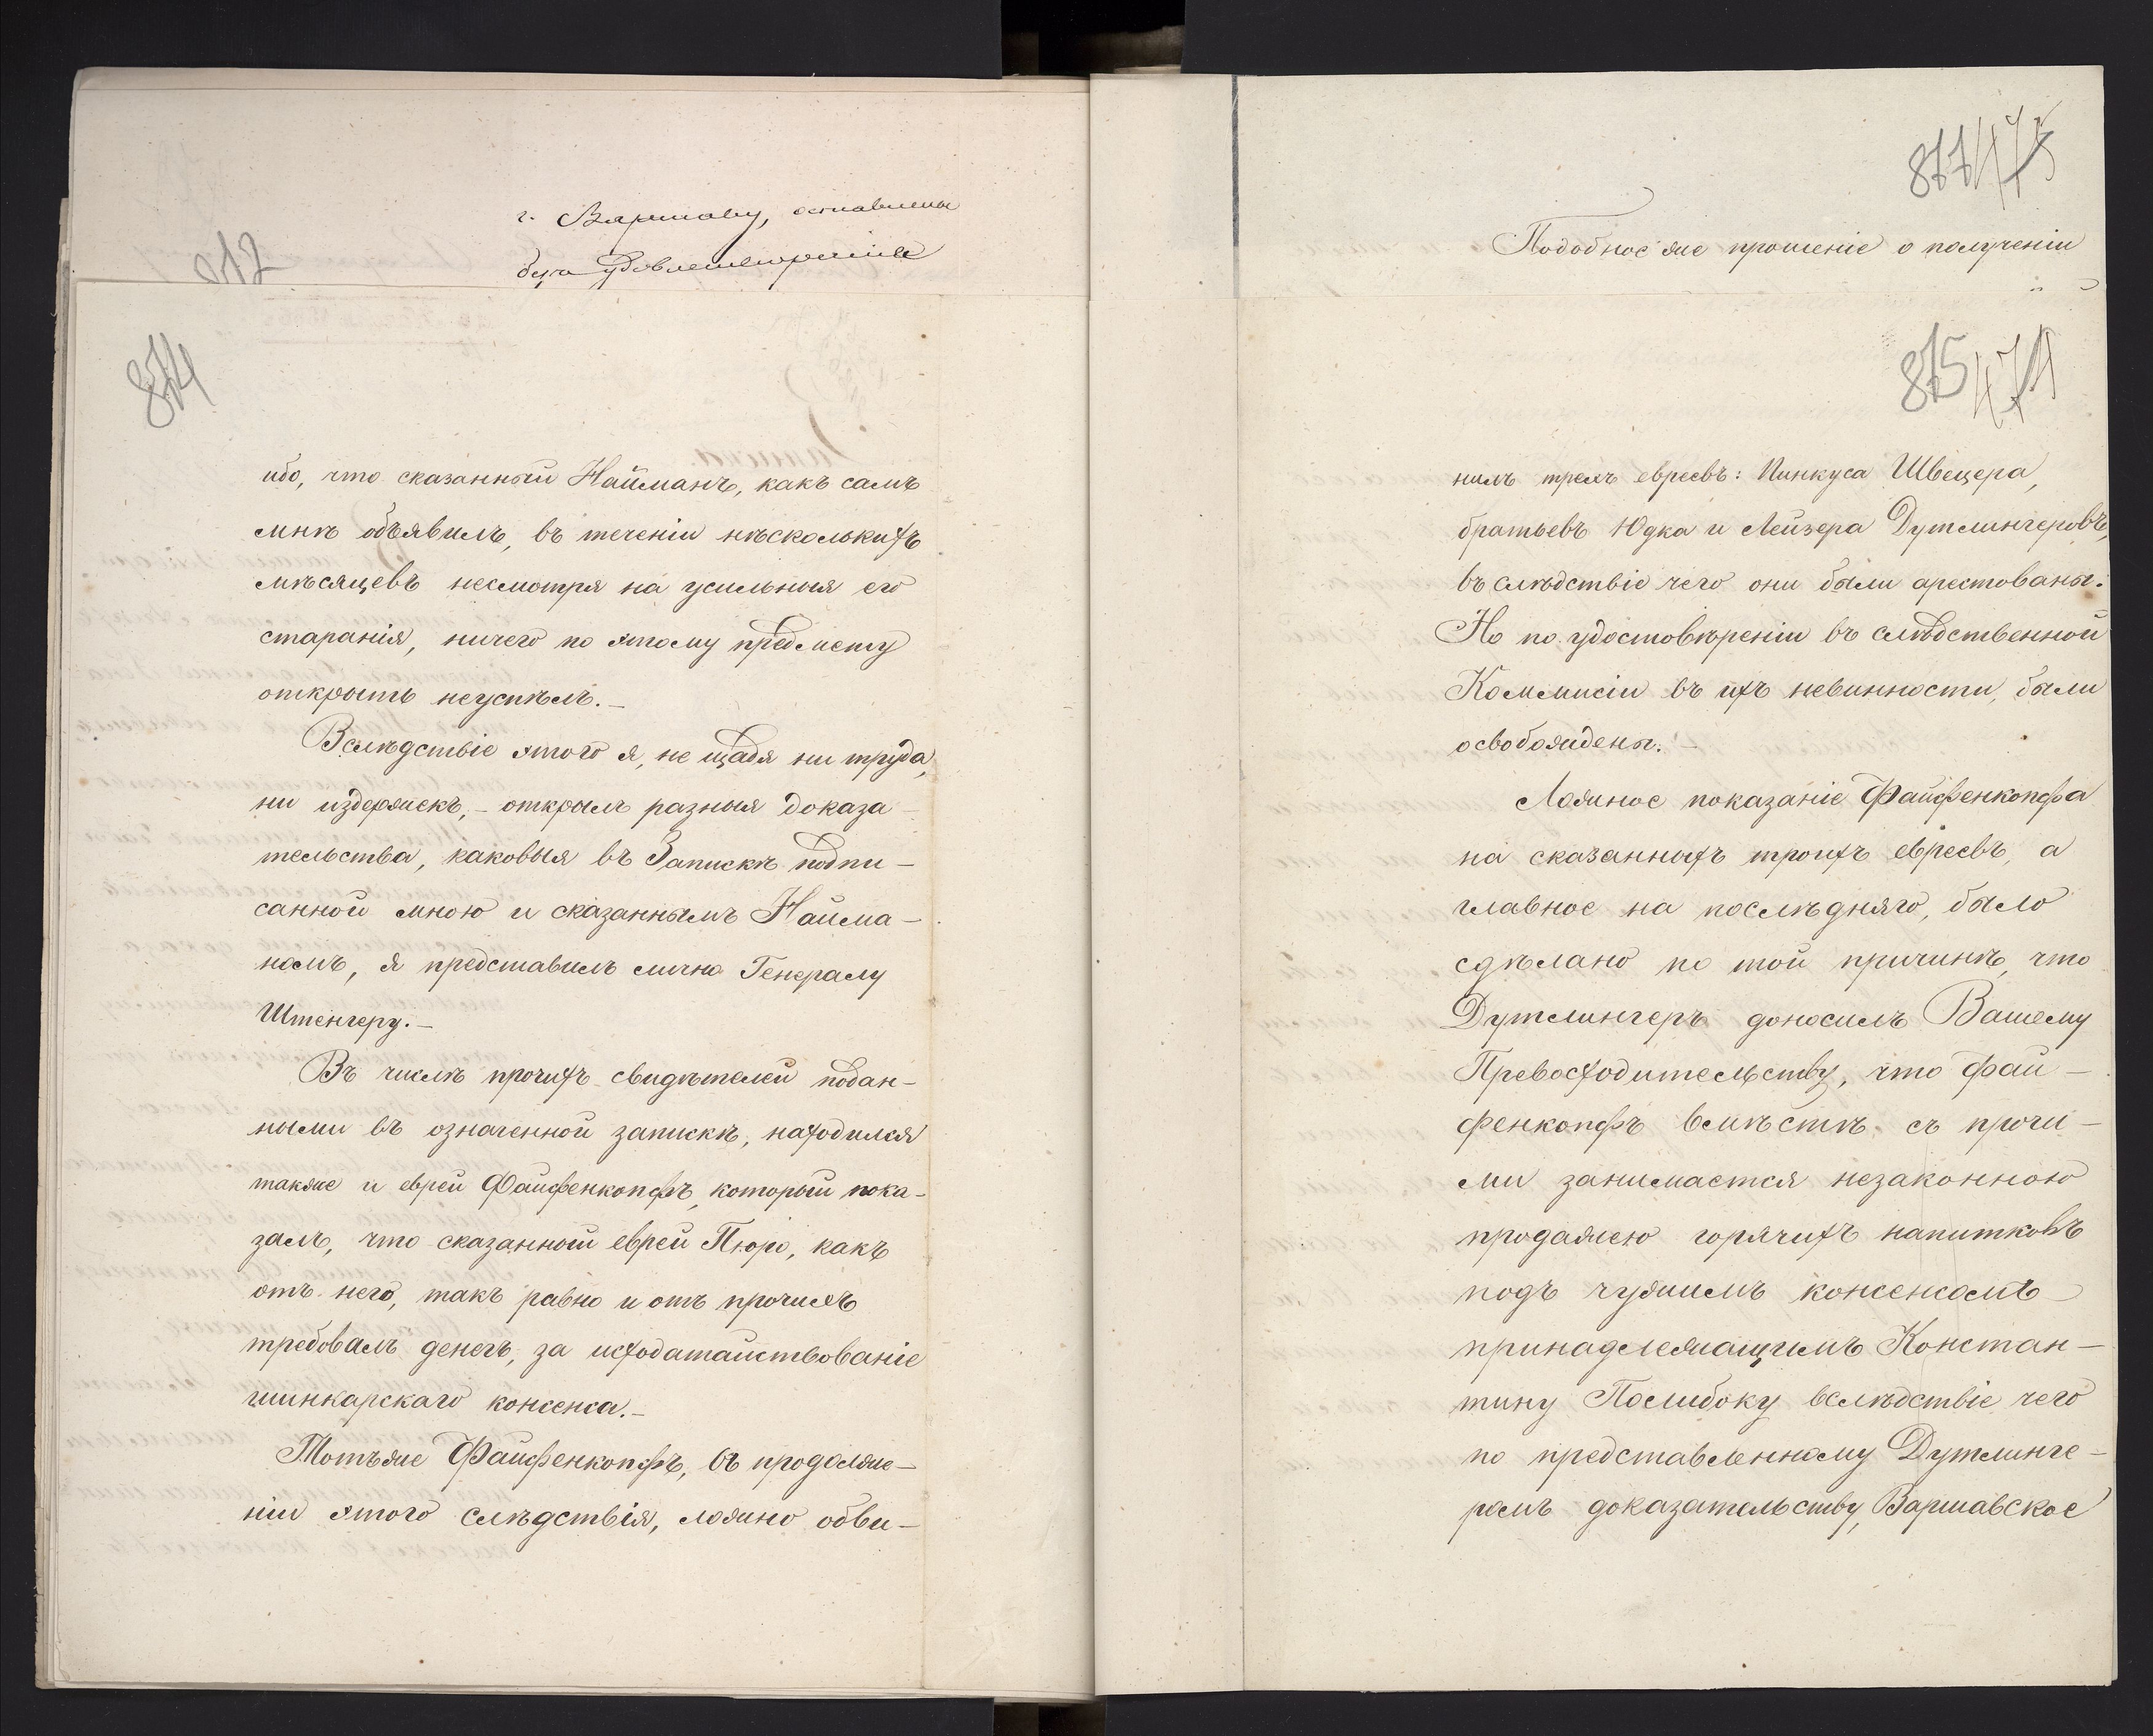 г. Варшаву, оставлены
безъ удовлетворенія
812
814
ибо, что сказанный Найманъ, какъ самъ
мнѣ объявилъ, въ теченіи нѣсколькихъ
мѣсяцевъ несмотря на усильныя его
старанія, ничего по этому предмету
открыть неуспѣлъ.—
Вслѣдствіе этого я, не щадя ни труда,
ни издержекъ,— открылъ разныя доказа-
тельства, каковыя въ Запискѣ подпи-
санной мною и сказаннымъ Найма-
номъ, я представилъ лично Генералу
Штенгеру.—
Въ числѣ прочихъ свидѣтелей подан-
ными въ означенной запискѣ, находился
также и еврей Файфенкопфъ, который пока-
залъ, что сказанный еврей Пюро, какъ
отъ него, такъ равно и отъ прочихъ
требовалъ денегъ, за исходатайствованіе
шинкарскаго консенса.—
Тотъже Файфенкопфъ, въ продолже-
ніи этого слѣдствія, ложно обви-
877 475
Подобное же прошеніе о полученіи
875 474
нилъ трехъ евреевъ: Пинкуса Швецера,
братьевъ Юдка и Лейзера Дутлингеровъ,
въ слѣдствіе чего они были арестованы.
Но по удостовѣреніи въ слѣдственной
Коммисіи въ ихъ невинности, были
освобождены.—
Ложное показаніе Файфенкопфа
на сказанныхъ троихъ евреевъ, а
главное на послѣдняго, было
сдѣлано по той причинѣ, что
Дутлингеръ доносилъ Вашему
Превосходительству, что Фай-
фенкопфъ вмѣстѣ съ прочи-
ми занимается незаконною
продажею горячихъ напитковъ
подъ чужимъ консенсомъ
принадлежащимъ Констан-
тину Полибоку вслѣдствіе чего
по представленному Дутлинге-
ромъ доказательству, Варшавское